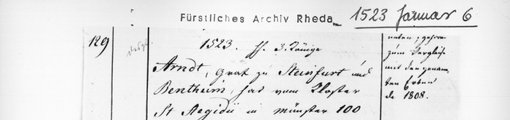 Fürstliches Archiv Rheda
1523 Januar 6
129
1523. ff. 3. Könige
Arndt, Graf zu Steinfurt und
Bentheim, hat vom Kloster
St Aegidii in Münster 100
zum Vergleiche
mit den genann
ten Erben
de 1808.